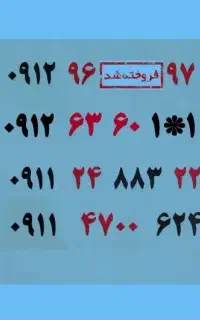 ۰۹۱۲ ۹۶ فروخته شد ۹۷
۰۹۱۲ ۶۳ ۶۰ ۱*۱
۰۹۱۱ ۲۴ ۸۸۳ ۲۲
۰۹۱۱ ۴۷۰۰ ۶۲۴